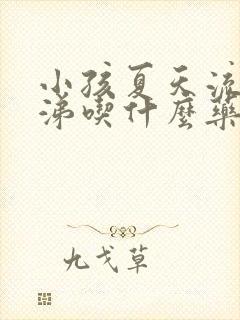 小孩夏天流
涕喫什麼藥
九戈草